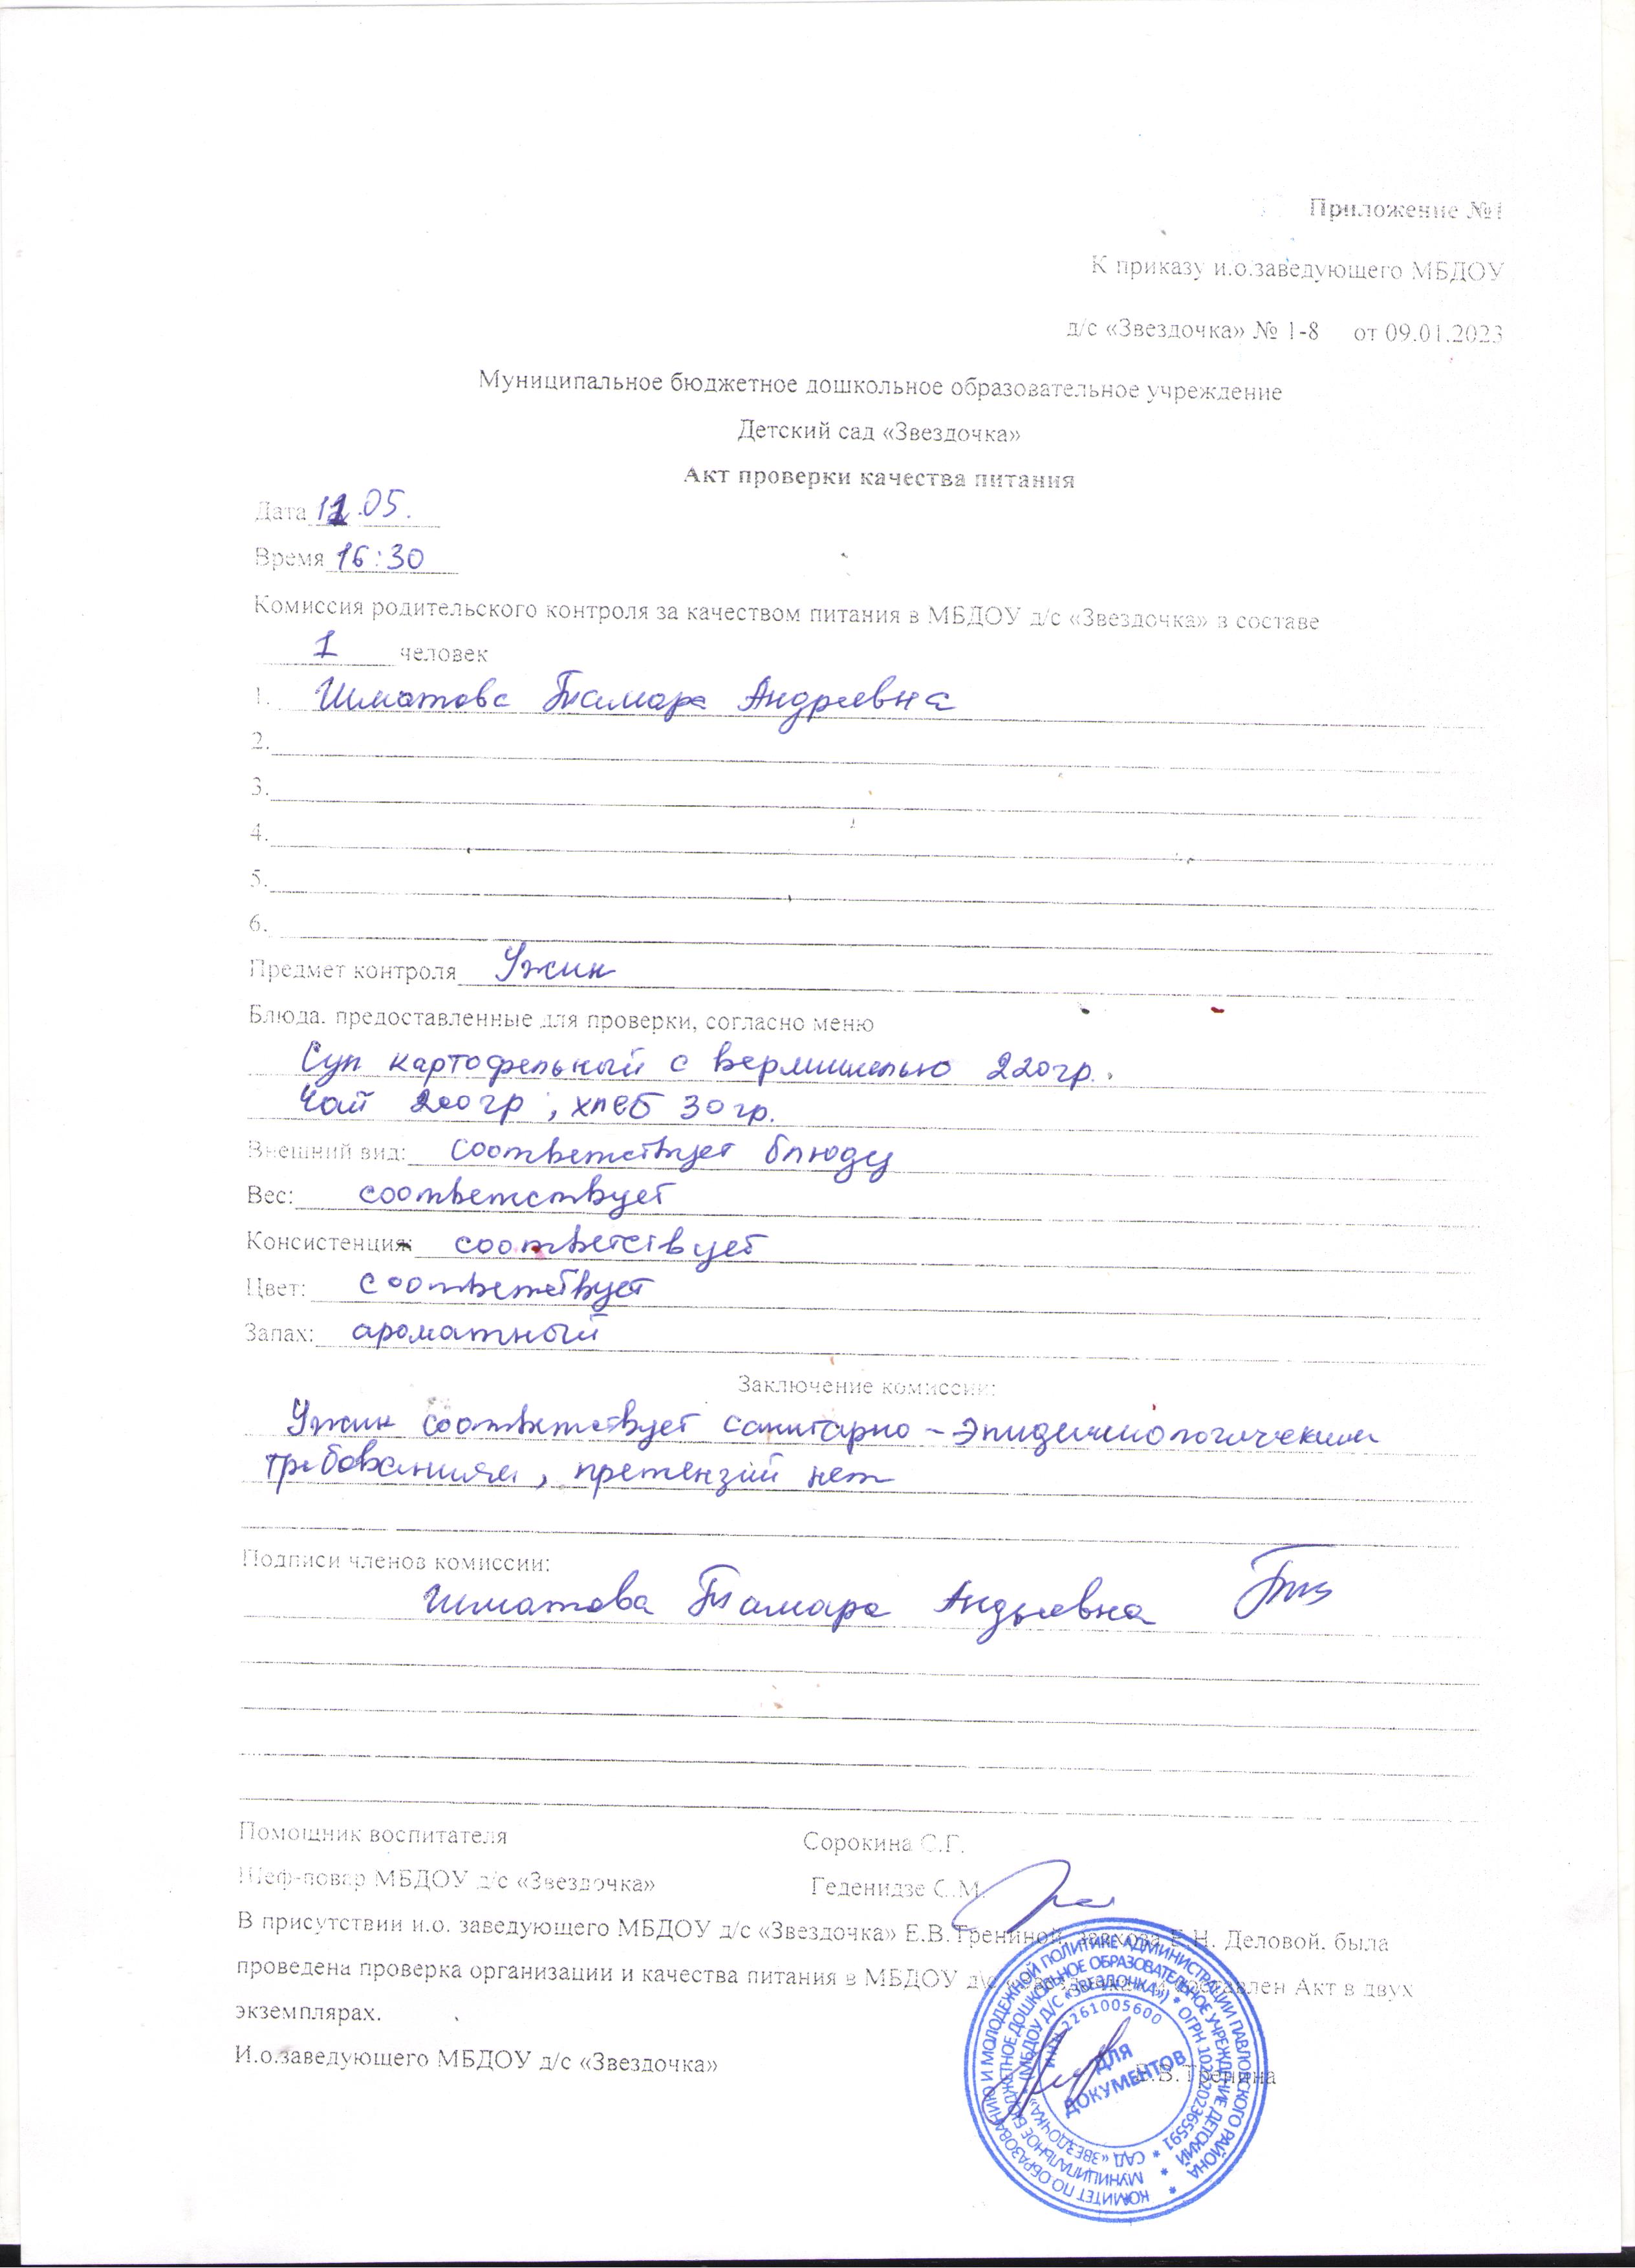 Приложение №1
К приказу и.о.заведующего МБДОУ
д/с «Звездочка» № 1-8 от 09.01.2023
Муниципальное бюджетное дошкольное образовательное учреждение
Детский сад «Звездочка»
Акт проверки качества питания
Дата 11.05.
Время 16:30
Комиссия родительского контроля за качеством питания в МБДОУ д/с «Звездочка» в составе
1 человек
1. Шматова Тамара Андреевна
2.
3.
4.
5.
6.
Предмет контроля Ужин
Блюда. предоставленные для проверки, согласно меню
Суп картофельный с вермишелью 220гр.
Чай 200гр, хлеб 30гр.
Внешний вид: соответствует блюду
Вес: соответствует
Консистенция: соответствует
Цвет: соответствует
Запах: ароматный
Заключение комиссии:
Ужин соответствует санитарно-эпидемиологическим
требованиям, претензий нет
Подписи членов комиссии:
Шматова Тамара Андреевна
Помощник воспитателя Сорокина С.Г.
Шеф-повар МБДОУ д/с «Звездочка» Геденидзе С.М.
В присутствии и.о. заведующего МБДОУ д/с «Звездочка» Е.В.Трениной, завхоза Е.Н. Деловой. была
проведена проверка организации и качества питания в МБДОУ д/с составлен Акт в двух
экземплярах.
И.о.заведующего МБДОУ д/с «Звездочка» Е.В.Тренина
КОМИТЕТ ПО ОБРАЗОВАНИЮ И МОЛОДЕЖНОЙ ПОЛИТИКЕ АДМИНИСТРАЦИИ ПАВЛОВСКОГО РАЙОНА
МУНИЦИПАЛЬНОЕ БЮДЖЕТНОЕ ДОШКОЛЬНОЕ ОБРАЗОВАТЕЛЬНОЕ УЧРЕЖДЕНИЕ ДЕТСКИЙ
САД «ЗВЕЗДОЧКА» (МБДОУ Д/С «ЗВЕЗДОЧКА») * ОГРН 1022202365591 *
ИНН 2261005600
ДЛЯ
ДОКУМЕНТОВ